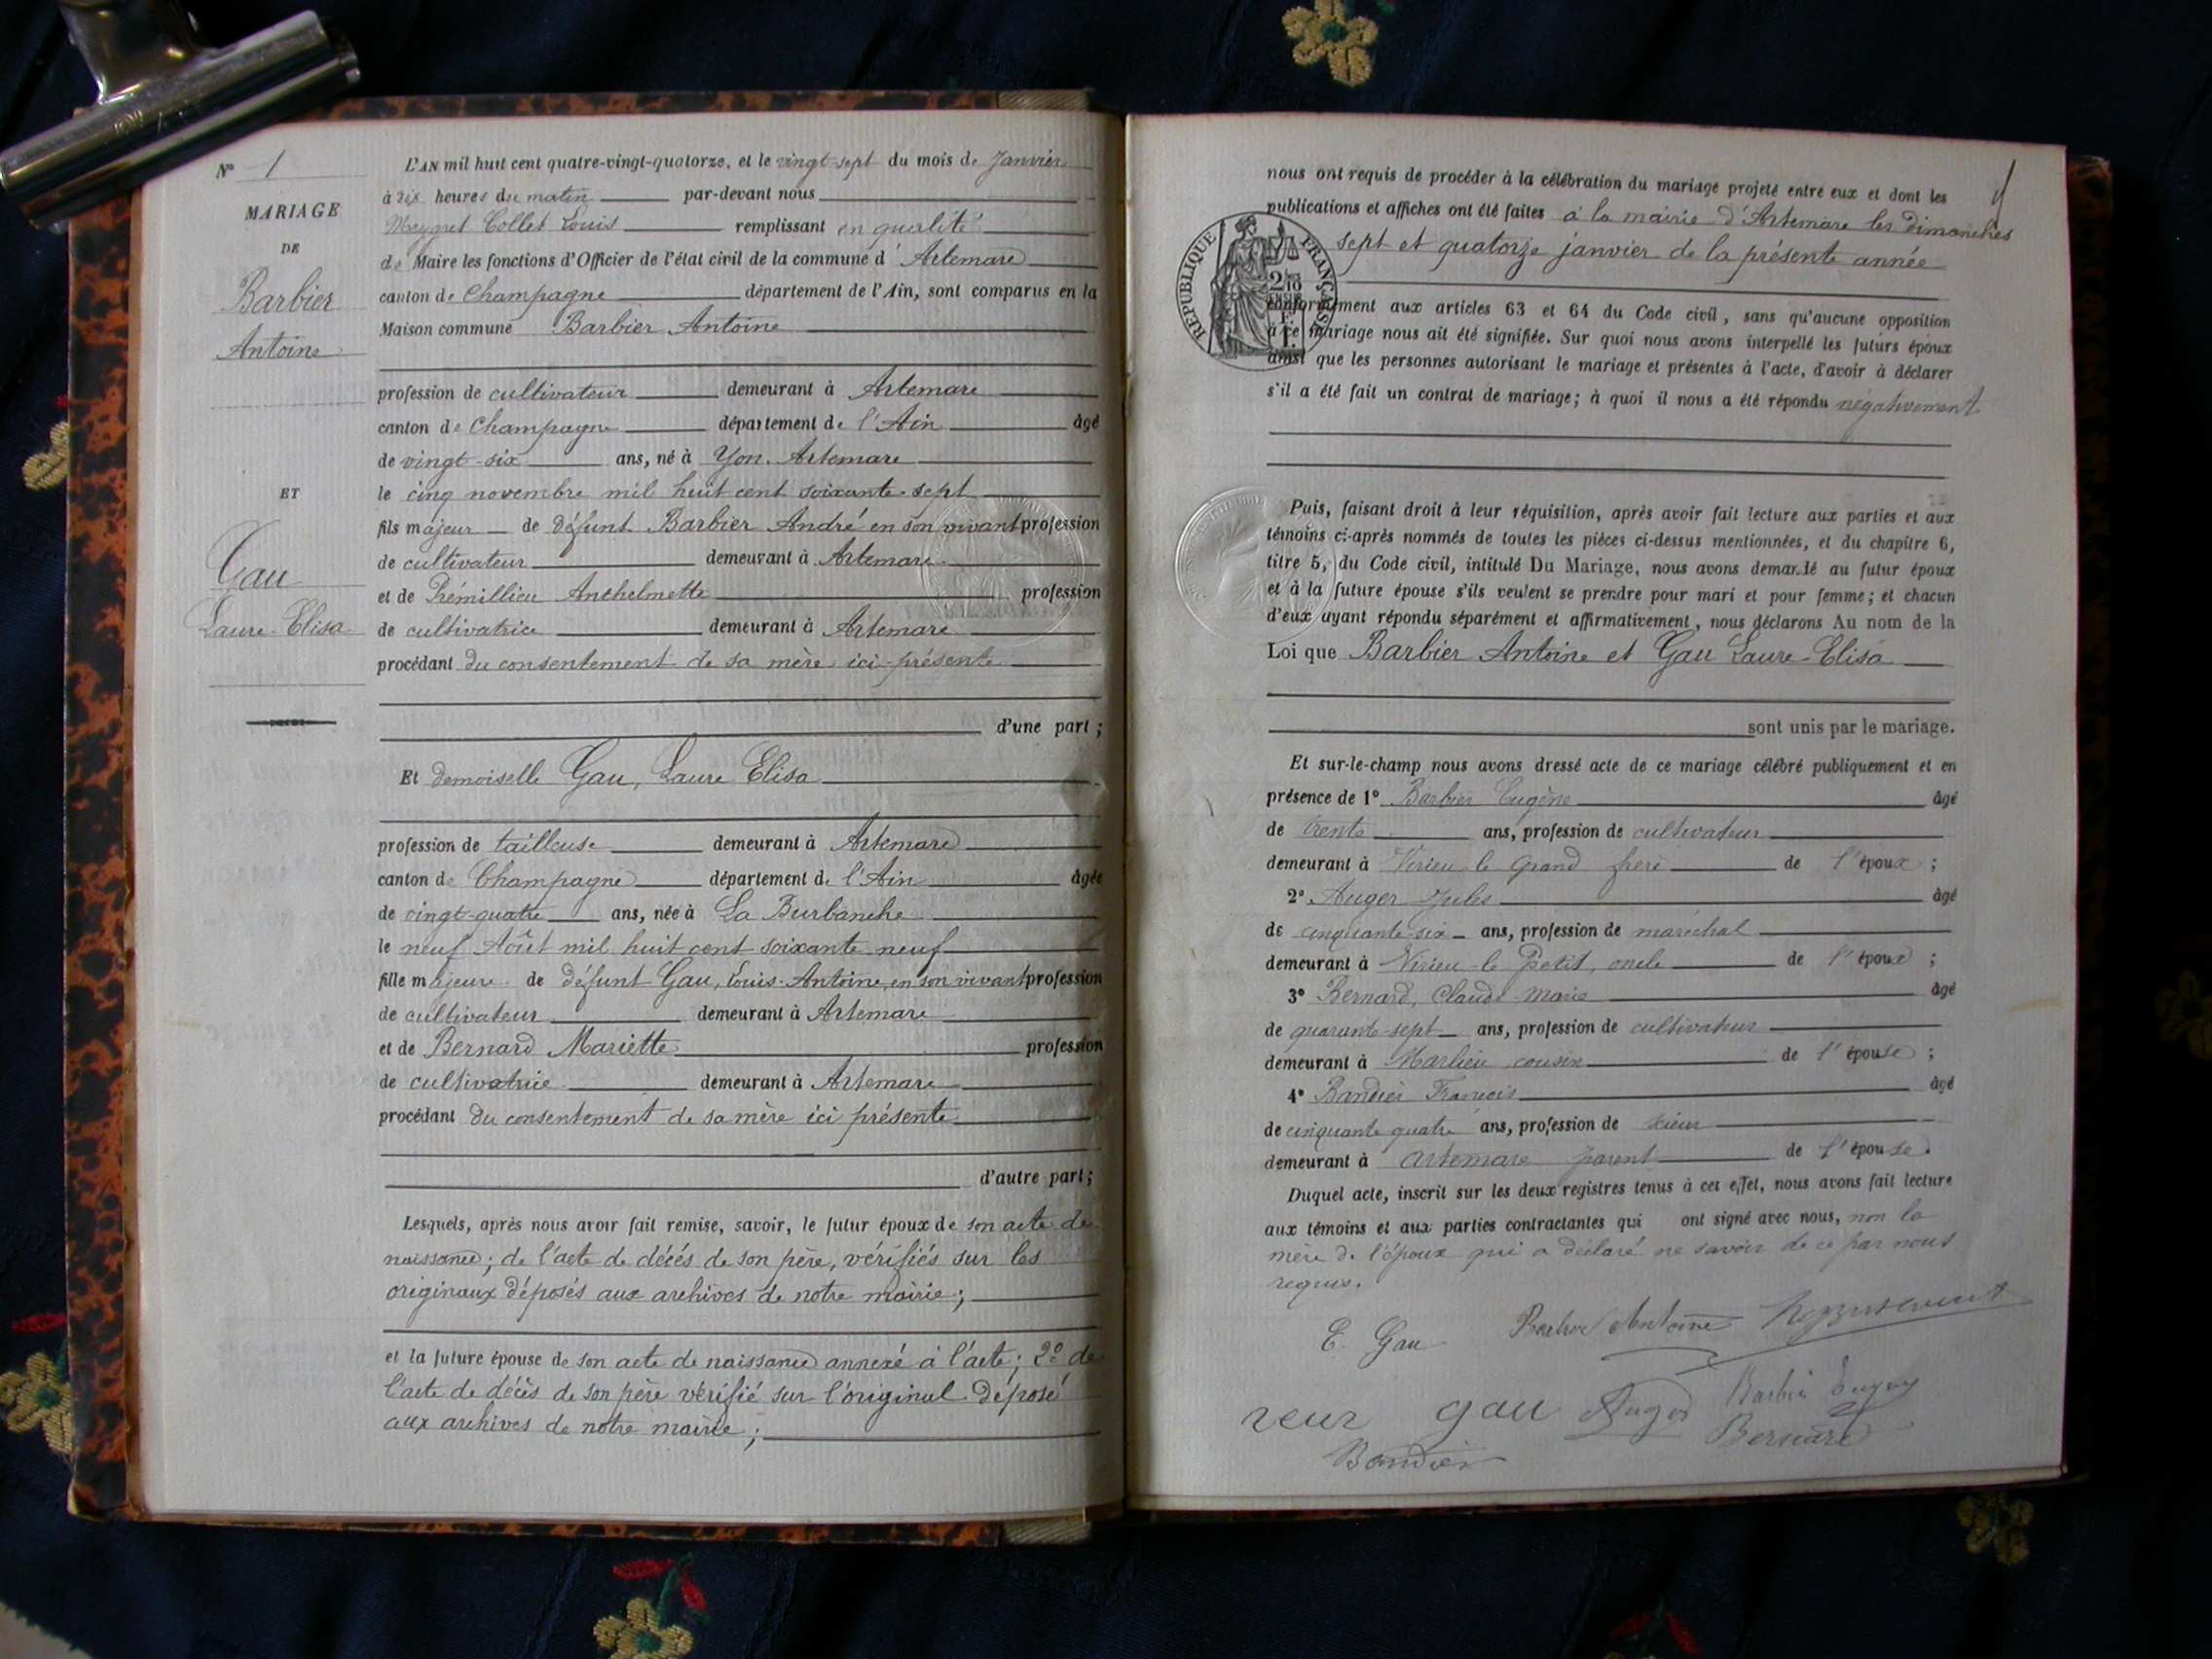 N° 1
MARIAGE
DE
Barbier
Antoine
ET
Gau
Laure-Elisa
L'AN mil huit cent quatre-vingt-quatorze, et le vingt-sept du mois de Janvier
à dix heures du matin par-devant nous
Meygret Collet Louis remplissant en qualité
de Maire les fonctions d'Officier de l'état civil de la commune d'Artemare
canton de Champagne département de l'Ain, sont comparus en la
Maison commune Barbier Antoine
profession de cultivateur demeurant à Artemare
canton de Champagne département de l'Ain âgé
de vingt-six ans, né à Yon. Artemare
le cinq novembre mil huit cent soixante-sept
fils majeur de défunt Barbier André en son vivant profession
de cultivateur demeurant à Artemare
et de Prémillieu Anthelmette profession
de cultivatrice demeurant à Artemare
procédant du consentement de sa mère ici-présente
d'une part ;
Et demoiselle Gau, Laure Elisa
profession de tailleuse demeurant à Artemare
canton de Champagne département de l'Ain âgée
de vingt-quatre ans, née à La Burbanche
le neuf Août mil huit cent soixante-neuf
fille majeure de défunt Gau, Louis-Antoine, en son vivant profession
de cultivateur demeurant à Artemare
et de Bernard Mariette profession
de cultivatrice demeurant à Artemare
procédant du consentement de sa mère ici présente
d'autre part ;
Lesquels, après nous avoir fait remise, savoir, le futur époux de son acte de
naissance ; de l'acte de décés de son père, vérifiés sur les
originaux déposés aux archives de notre mairie ;
et la future épouse de son acte de naissance annexé à l'acte ; 2° de
l'acte de décès de son père vérifié sur l'original déposé
aux archives de notre mairie ;
nous ont requis de procéder à la célébration du mariage projeté entre eux et dont les
publications et affiches ont été faites à la mairie d'Artemare les dimanches
sept et quatorze janvier de la présente année
REPUBLIQUE FRANÇAISE
conformément aux articles 63 et 64 du Code civil, sans qu'aucune opposition
à ce mariage nous ait été signifiée. Sur quoi nous avons interpellé les futurs époux
ainsi que les personnes autorisant le mariage et présentes à l'acte, d'avoir à déclarer
s'il a été fait un contrat de mariage ; à quoi il nous a été répondu négativement
Puis, faisant droit à leur réquisition, après avoir fait lecture aux parties et aux
témoins ci-après nommés de toutes les pièces ci-dessus mentionnées, et du chapitre 6,
titre 5, du Code civil, intitulé Du Mariage, nous avons demandé au futur époux
et à la future épouse s'ils veulent se prendre pour mari et pour femme ; et chacun
d'eux ayant répondu séparément et affirmativement, nous déclarons Au nom de la
Loi que Barbier Antoine et Gau Laure-Elisa
sont unis par le mariage.
Et sur-le-champ nous avons dressé acte de ce mariage célébré publiquement et en
présence de 1° Barbier Eugène âgé
de trente ans, profession de cultivateur
demeurant à Virieu-le Grand frère de l'époux ;
2° Auger Jules âgé
de cinquante-six ans, profession de maréchal
demeurant à Virieu-le Petit, oncle de l'époux ;
3° Bernard, Claude-Marie âgé
de quarante-sept ans, profession de cultivateur
demeurant à Marlieu cousin de l'épouse ;
4° Bandier François âgé
de cinquante quatre ans, profession de scieur
demeurant à artemare parent de l'épouse.
Duquel acte, inscrit sur les deux registres tenus à cet effet, nous avons fait lecture
aux témoins et aux parties contractantes qui ont signé avec nous, non la
mère de l'époux qui a déclaré ne savoir de ce par nous
requise.
E. Gau Barbier Antoine
gau Auger Barbier Eugène
Bernard
Bandier